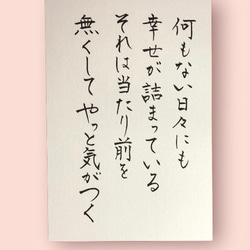 何もない日々にも
幸せが詰まっている
それは当たり前を
無くして やっと気がつく